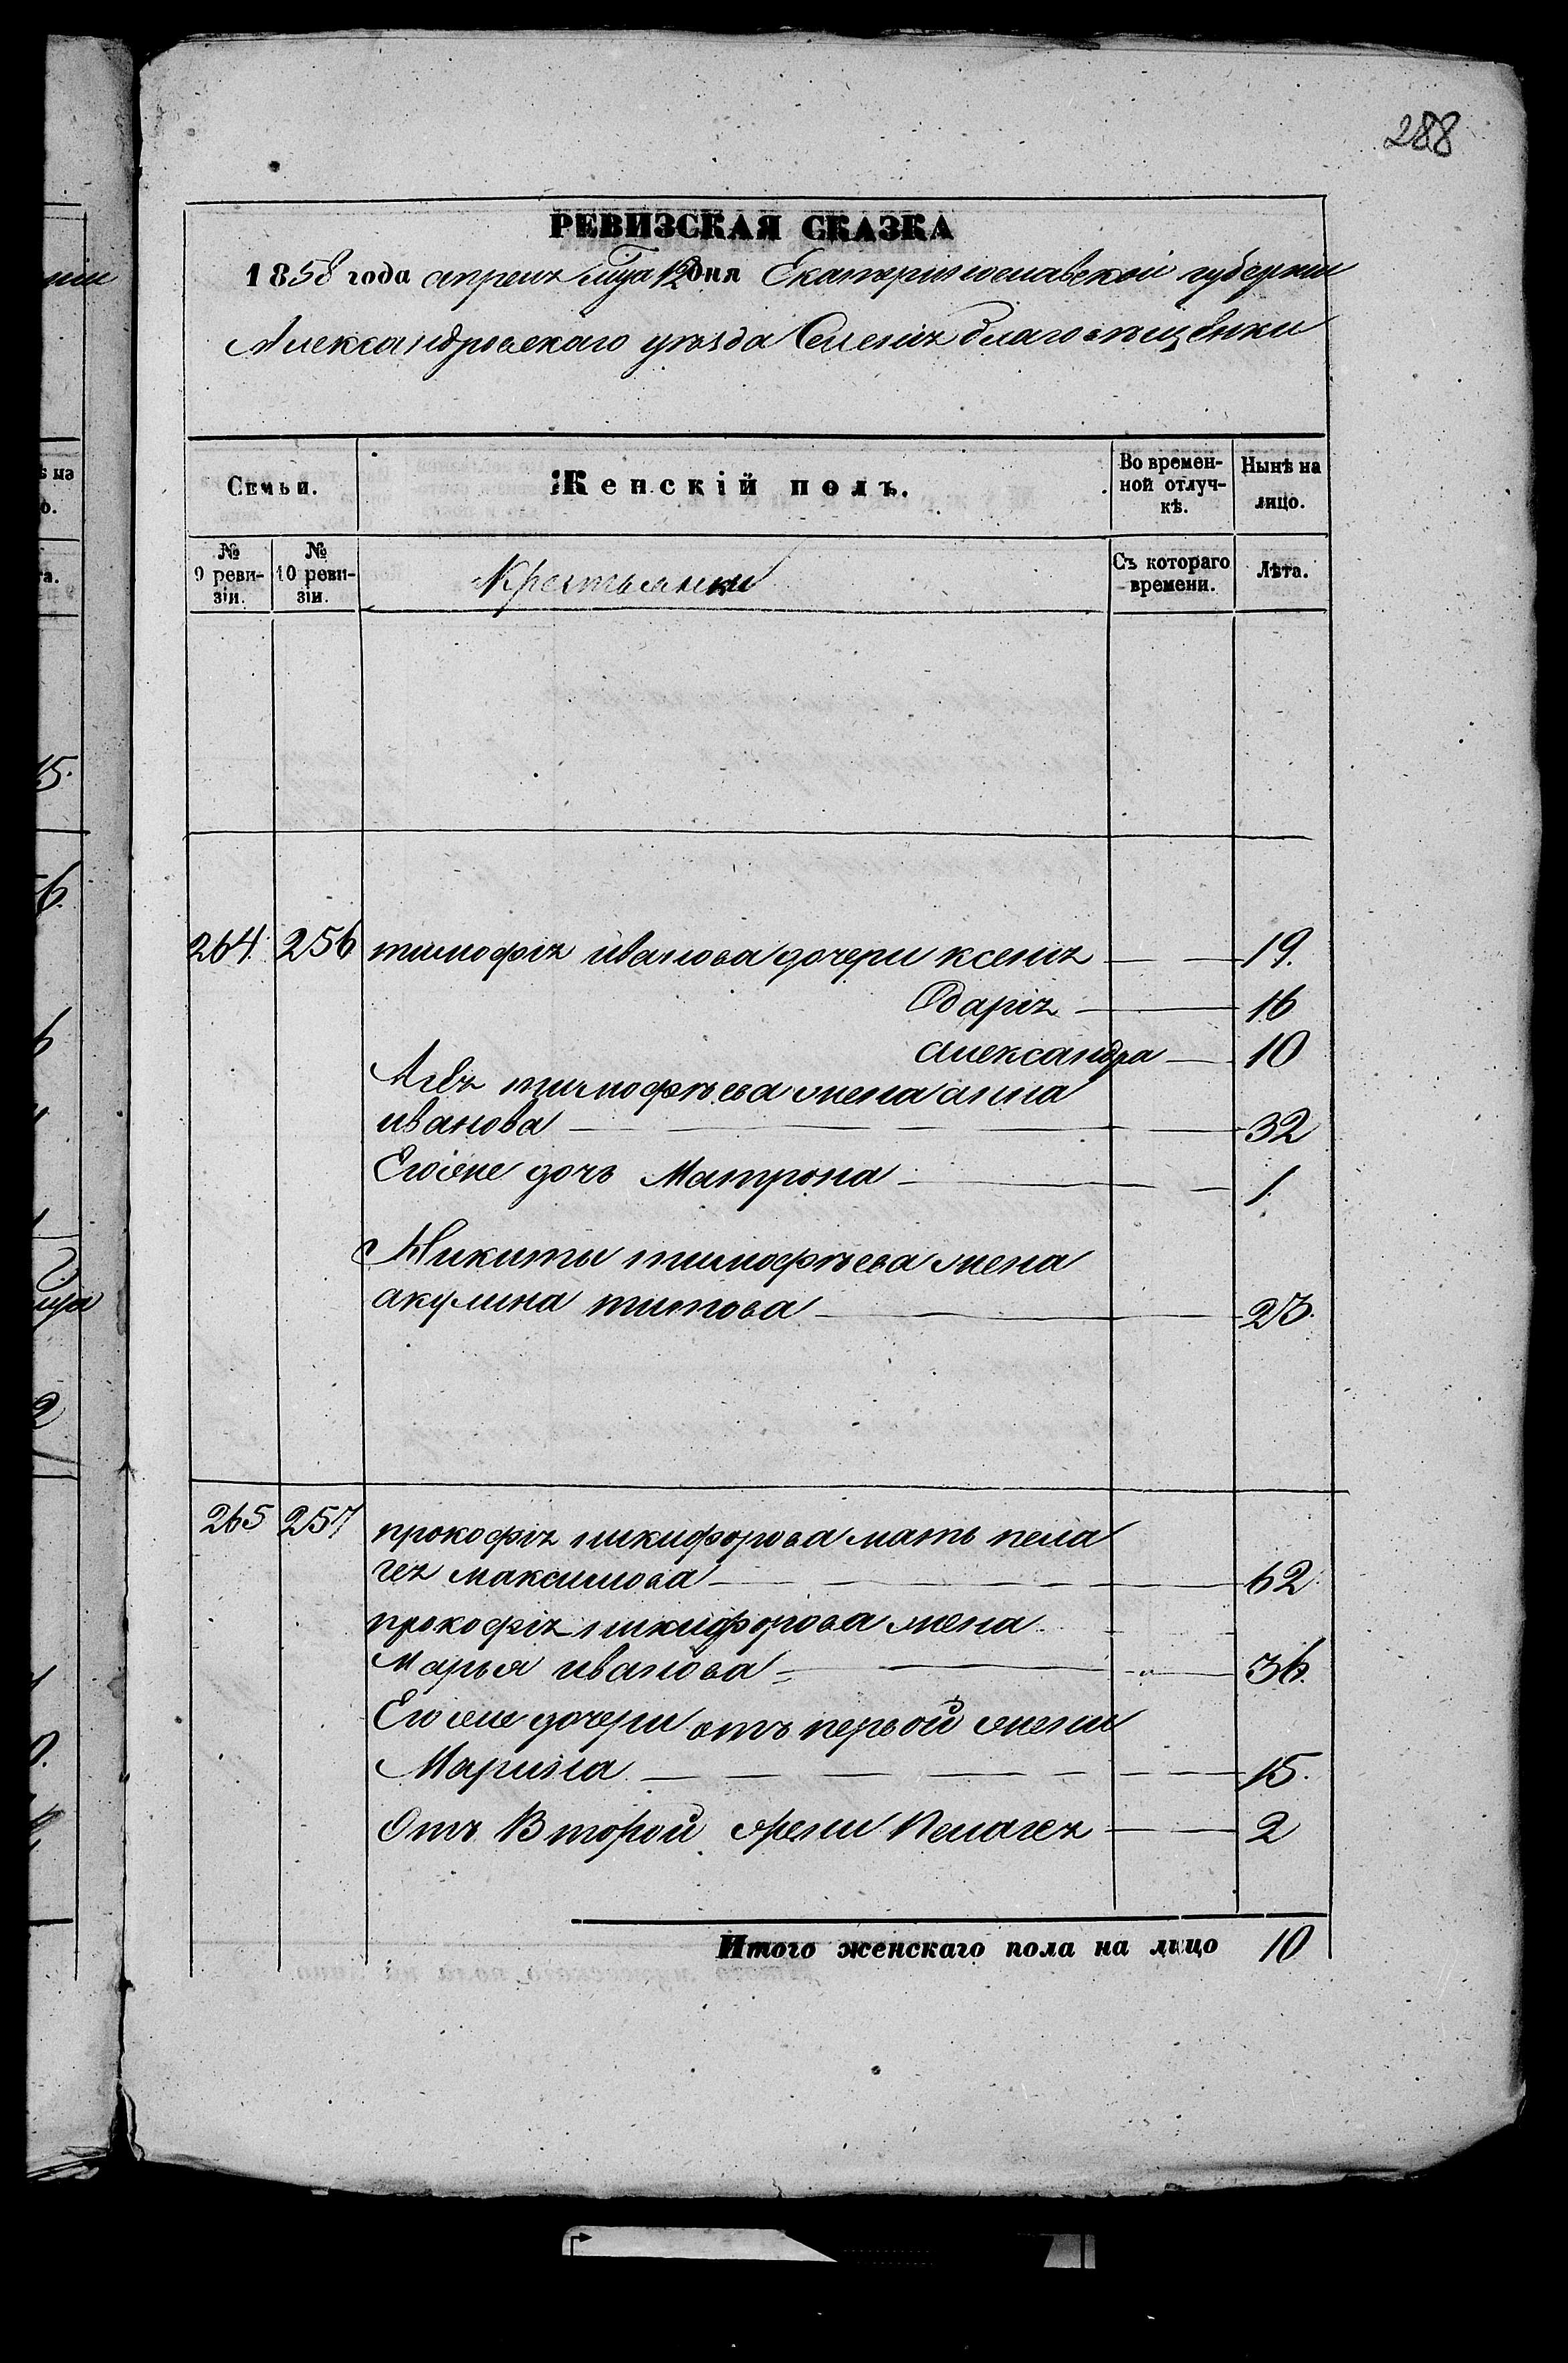 288
РЕВИЗСКАЯ СКАЗКА
1858 года апреля мца 12 дня Екатеринославской губернии
Александровскаго уезда Селенія благовещенки
Семьи.
Женскій полъ.
Во времен-
ной отлуч-
кѣ.
Нынѣ на
лицо.
№
9 реви-
зіи.
№
10 реви-
зіи.
Крестьянки
Съ котораго
времени.
Лѣта.
264. 256 тимофія иванова дочери ксенія 19.
Одарія 16
александра 10
тимофѣева жена анна
иванова 32
Егоже дочь Матрона 1.
Никиты тимофѣева жена
акулина титова 23.
265 257 прокофія никифорова мать пела
гея максимова 62.
прокофія никифорова жена
Марья иванова 36.
Егоже дочери отъ первой жены
Марина 15.
Отъ Второй жены Пелагея 2
Итого женскаго пола на лицо 10